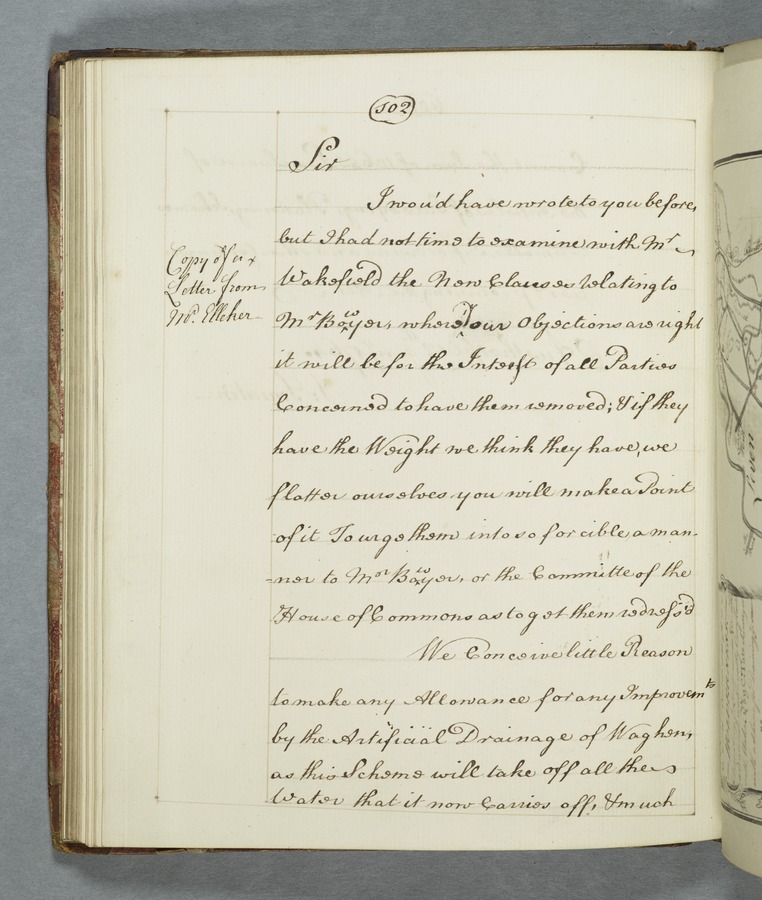 102
Sir
I wou'd have wrote to you before,
but I had not time to examine with Mr
Copy of a
Letter from
Mr. Elleker
Wakefield the New Clauses relating to
Mr Bowyer, where our Objections are right
it will be for the Interest of all Parties
Concerned to have them removed; & if they
have the Weight we think they have, we
flatter ourselves you will make a Point
of it To urge them into so forcible a man-
-ner to Mr Bowyer, or the Committe of the
House of Commons as to get them redress'd
We Conceive little Reason
to make any Allowance for any Improvemts
by the Artificial Drainage of Waghen,
as this Scheme will take off all the
Water that it now Carries off, & much